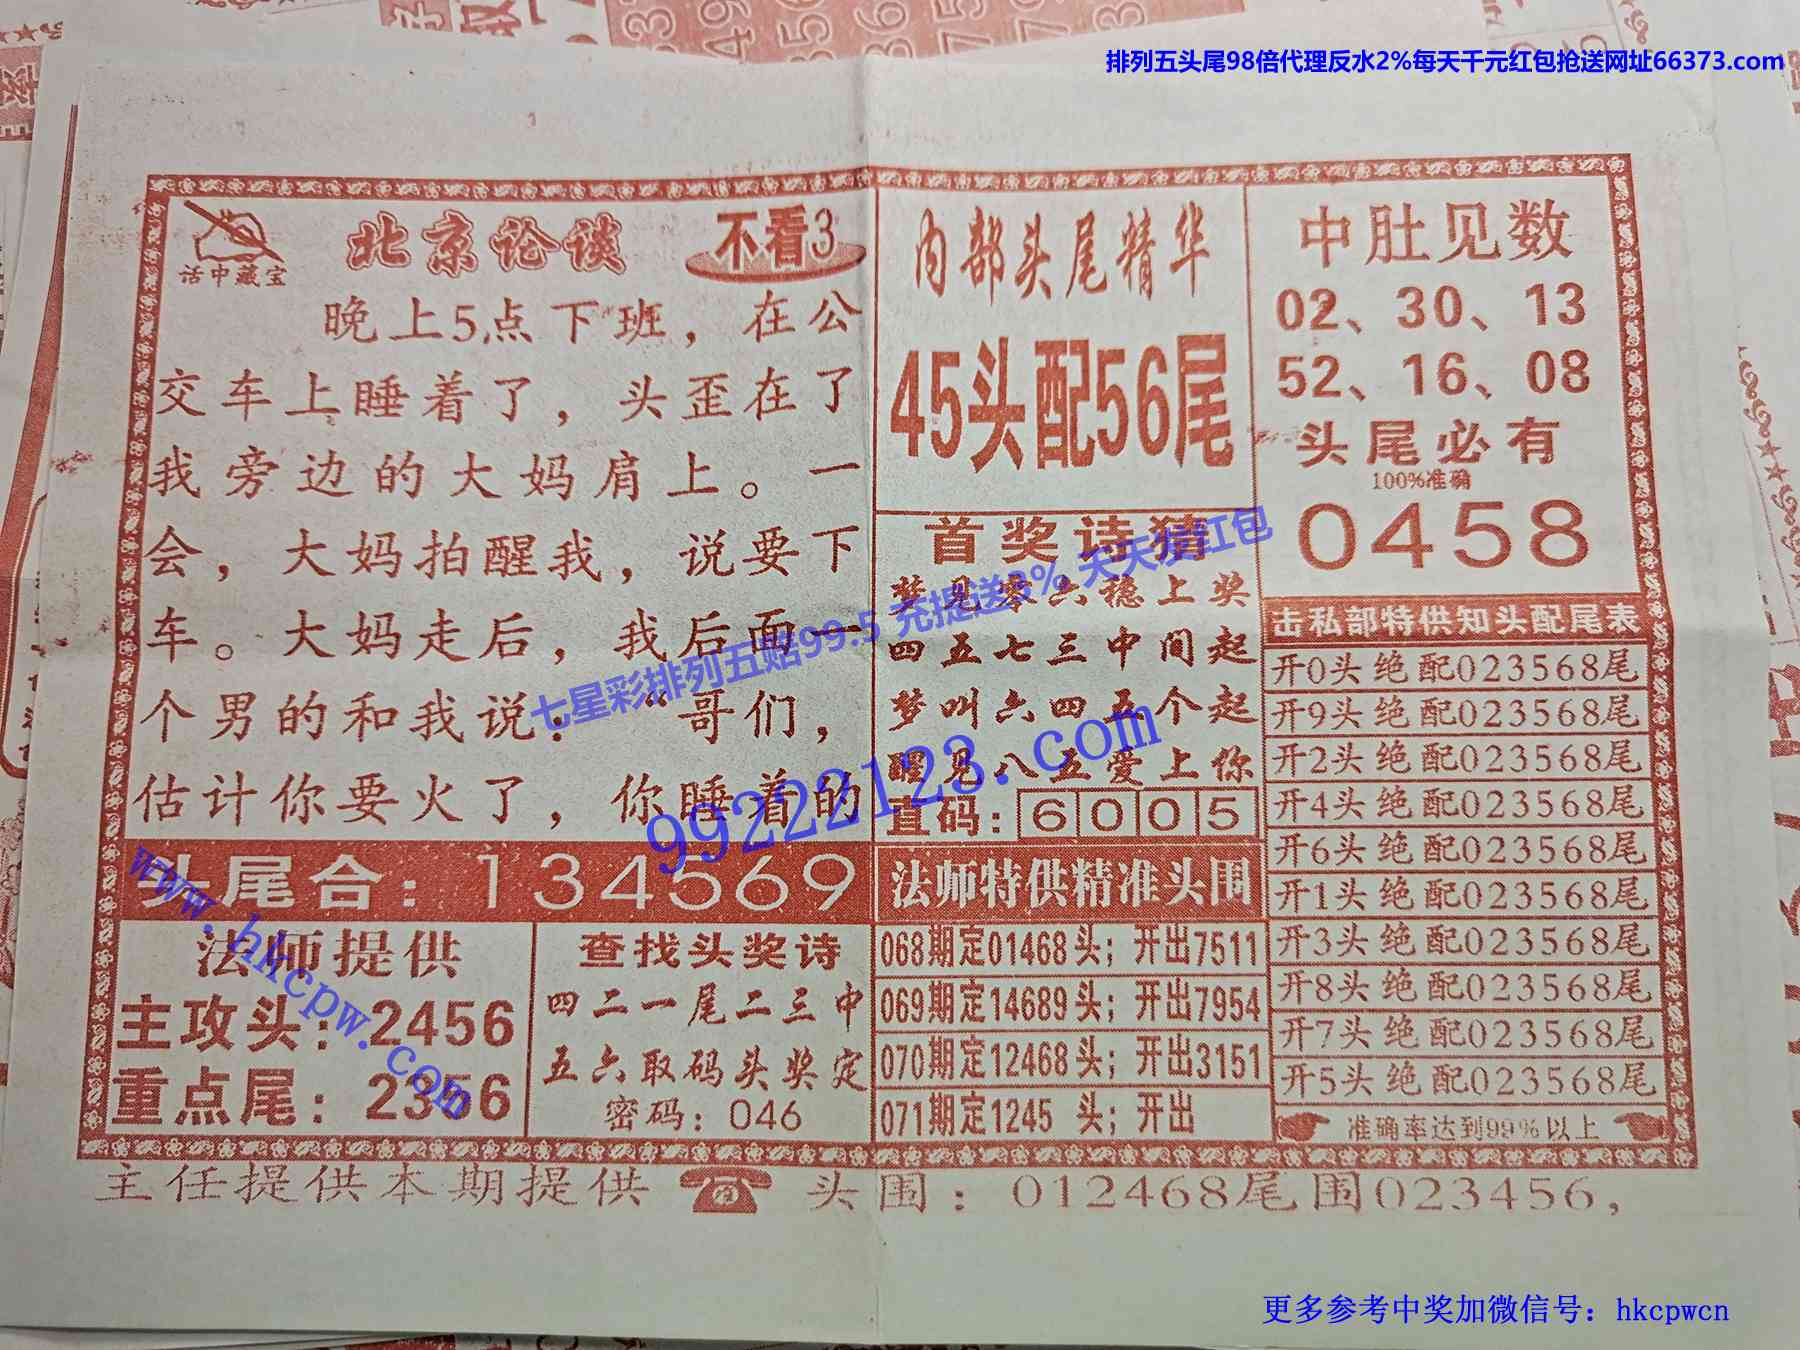 排列五头尾98倍代理反水2%每天千元红包抢送网址66373.com
话中藏宝
北京论谈
不看3
晚上5点下班，在公
交车上睡着了，头歪在了
我旁边的大妈肩上。一
会，大妈拍醒我，说要下
车。大妈走后，我后面一
个男的和我说：“哥们，
估计你要火了，你睡着的
头尾合：134569
法师提供
主攻头：2456
重点尾：2356
查找头奖诗
四二一尾二三中
五六取码头奖定
密码：046
内部头尾精华
45头配56尾
首奖诗猜
梦见零六稳上奖
四五七三中间起
梦叫六四五个起
醒见八五爱上你
直码：6005
法师特供精准头围
068期定01468头；开出7511
069期定14689头；开出7954
070期定12468头；开出3151
071期定1245 头；开出
中肚见数
02、30、13
52、16、08
头尾必有
100%准确
0458
击私部特供知头配尾表
开0头绝配023568尾
开9头绝配023568尾
开2头绝配023568尾
开4头绝配023568尾
开6头绝配023568尾
开1头绝配023568尾
开3头绝配023568尾
开8头绝配023568尾
开7头绝配023568尾
开5头绝配023568尾
准确率达到99%以上
主任提供本期提供 头围：012468尾围023456，
七星彩排列五赔99.5 充提送3% 天天抢红包
99222123.com
www.hkcpw.com
更多参考中奖加微信号：hkcpwcn